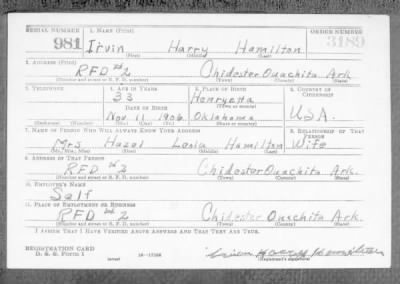 SERIAL NUMBER 1. NAME (Print) ORDER NUMBER
981 Irvin Harry Hamilton 3189
(First) (Middle) (Last)
2. ADDRESS (Print)
RFD #2 Chidester Ouachita Ark
(Number and street or R. F. D. number) (Town) (County) (State)
3. TELEPHONE 4. AGE IN YEARS 5. PLACE OF BIRTH 6. COUNTRY OF CITIZENSHIP
33 Henryetta
DATE OF BIRTH (Town or county)
Nov 11 1906 Oklahoma USA.
(Exchange) (Number) (Mo.) (Day) (Yr.) (State or country)
7. NAME OF PERSON WHO WILL ALWAYS KNOW YOUR ADDRESS 8. RELATIONSHIP OF THAT PERSON
Mrs Hazel Hamilton Wife
(Mr., Mrs., Miss) (First) (Middle) (Last)
9. ADDRESS OF THAT PERSON
RFD #2 Chidester Ouachita Ark.
(Number and street or R. F. D. number) (Town) (County) (State)
10. EMPLOYER'S NAME
Self
11. PLACE OF EMPLOYMENT OR BUSINESS
RFD #2 Chidester Ouachita Ark.
(Number and street or R. F. D. number) (Town) (County) (State)
I AFFIRM THAT I HAVE VERIFIED ABOVE ANSWERS AND THAT THEY ARE TRUE.
REGISTRATION CARD
D. S. S. Form 1 Irvin Harry Hamilton
(over) 16-17105 (Registrant's signature)